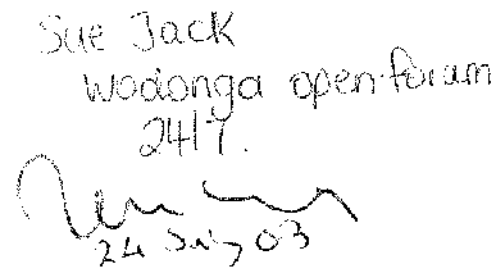 Sue Jack
Wodonga open forum
24/7.
24 July 03